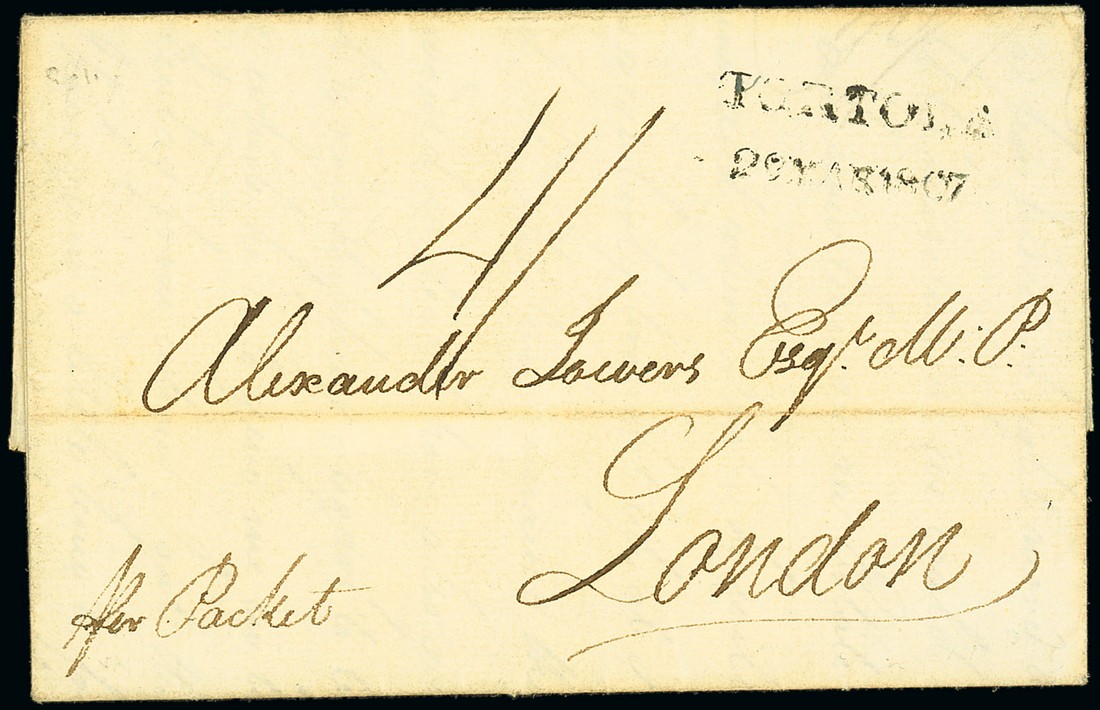 TORTOLA
29 MAR 1807
4/
Alexander Towers Esqr. M: P.
London
Per Packet